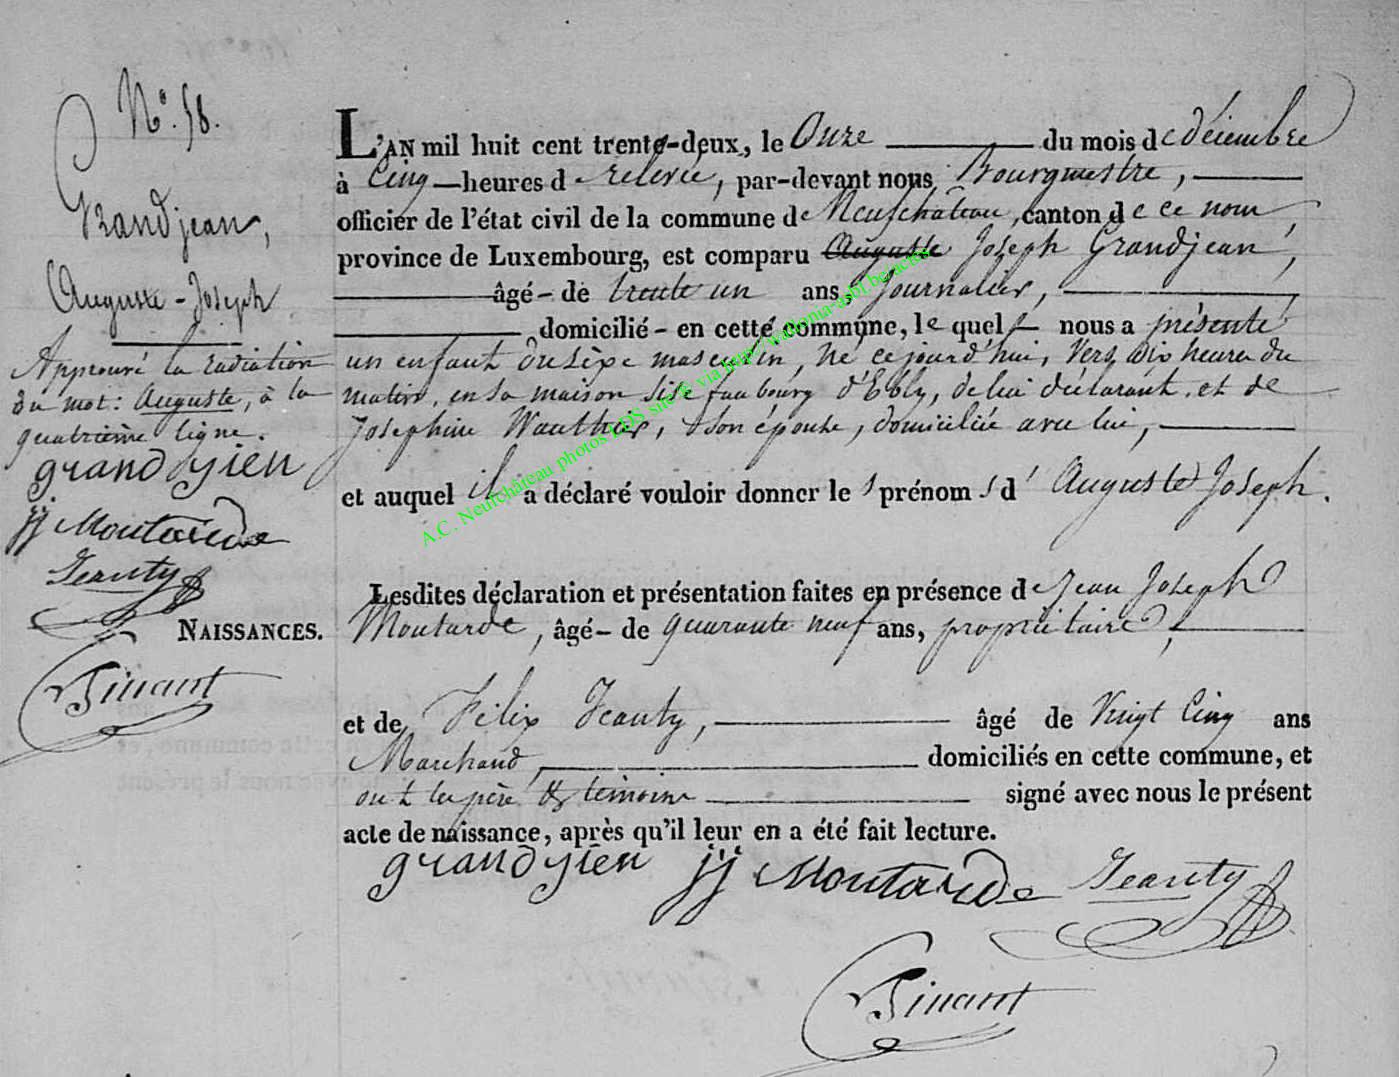 N° 58.
Grandjean,
Auguste-Joseph
Approuvé la radiation
du mot: Auguste, à la
quatrième ligne.
grandjien
jj Moutarde
Jeanty
NAISSANCES.
Pinant
L'AN mil huit cent trente-deux, le Onze du mois de décembre
à Cinq heures de relevée, par-devant nous Bourgmestre,
officier de l'état civil de la commune de Neufchateau, canton de ce nom,
province de Luxembourg, est comparu Auguste Joseph Grandjean,
âgé de trente un ans, Journalier,
domicilié en cette commune, lequel nous a présenté
un enfant du sèxe masculin, né cejourd'hui, vers dix heures du
matin, en sa maison sise faubourg d'Ebly, de lui déclarant, et de
Josephine Wauthier, son épouse, domiciliée avec lui,
et auquel il a déclaré vouloir donner les prénoms d'Auguste Joseph.
Lesdites déclaration et présentation faites en présence de Jean Joseph
Moutarde, âgé de quarante neuf ans, propriétaire,
et de Félix Jeanty, âgé de Vingt Cinq ans
Marchand, domiciliés en cette commune, et
ont les père & témoins signé avec nous le présent
acte de naissance, après qu'il leur en a été fait lecture.
grandjien jj Moutarde Jeanty
Pinant
A.C. Neufchâteau photos LDS site © via http://wallonia-asbl.be/actes